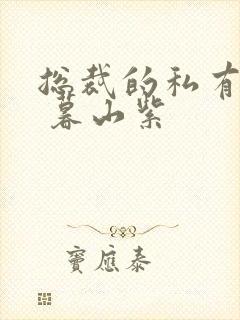 总裁的私有
暮山紫
窦应泰